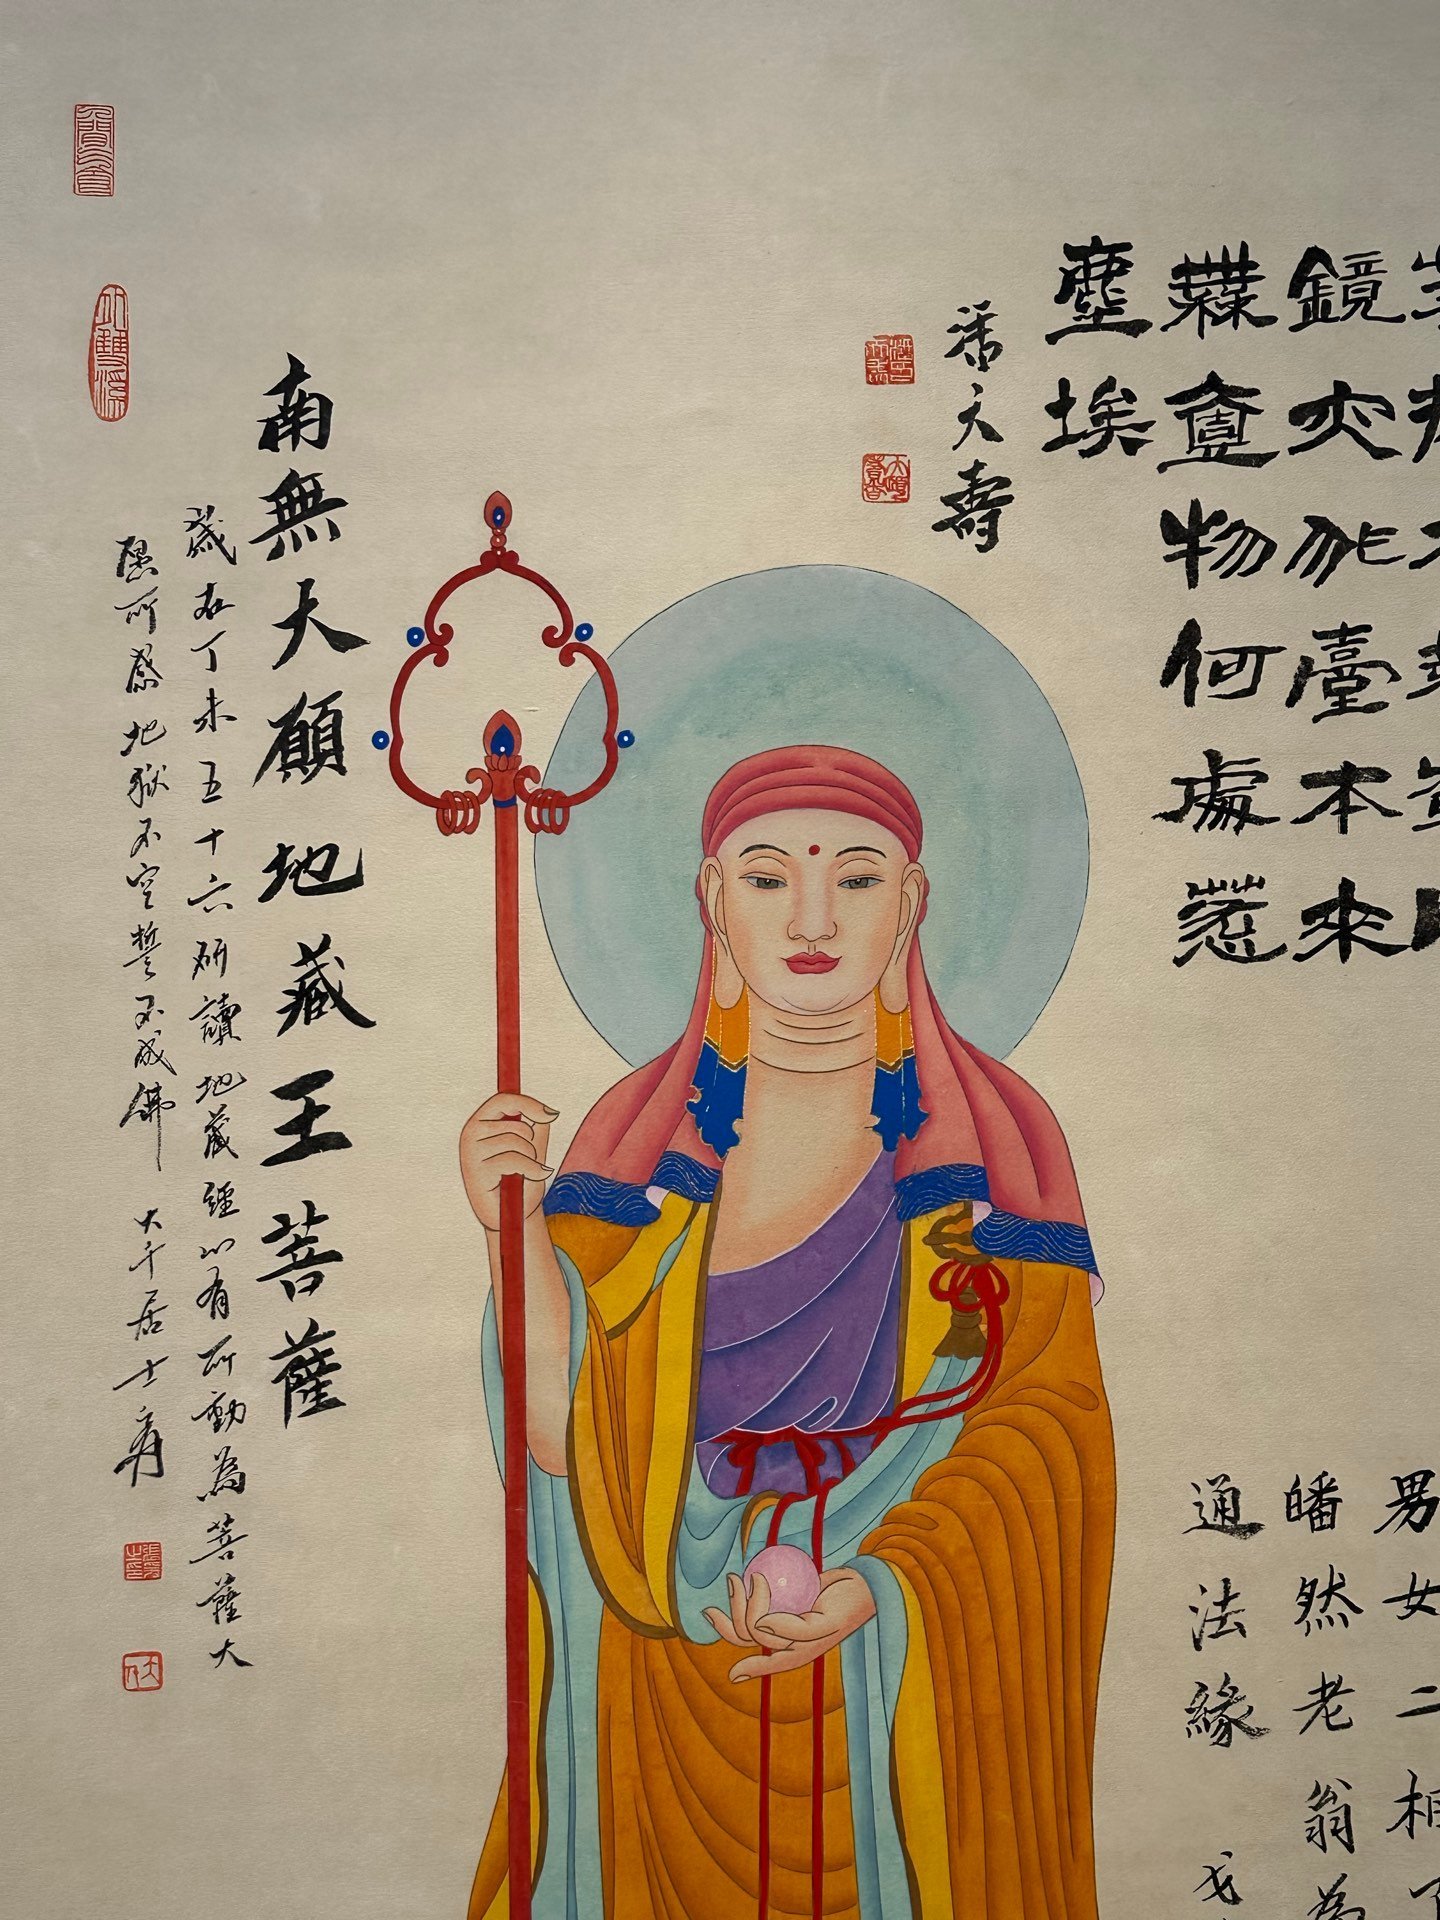 鏡亦非臺本來
無壹物何處惹
塵埃
潘天壽
男女二相
皤然老翁為
通法緣
南無大願地藏王菩薩
歲在丁未五十六研讀地藏經以有所動為菩薩大
愿所感地獄不空誓不成佛 大千居士爰